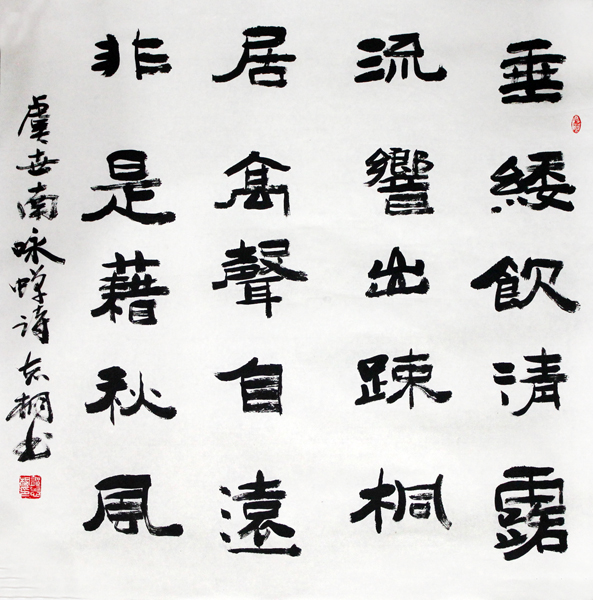 垂緌飲清露
流響出踈桐
居高聲自遠
非是藉秋風
虞世南咏蝉诗 志桐书